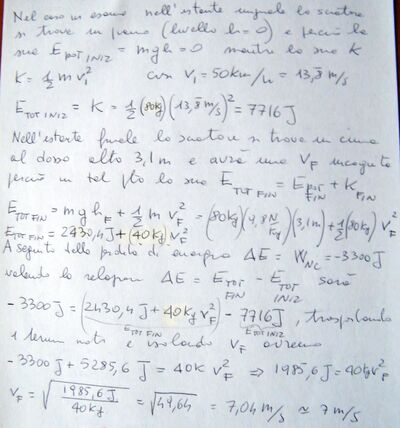 Nel caso in esame nell'istante iniziale lo sciatore
si trova in piano (livello h=0) e perciò la
sua E_POT INIZ = mgh = 0 mentre la sua K
K = 1/2 m v_1^2 con V_1 = 50 Km/h = 13,8̅ m/s
E_TOT INIZ = K = 1/2 (80kg)(13,8̅ m/s)^2 = 7716 J
Nell'istante finale lo sciatore si trova in cima
al dosso alto 3,1 m e avrà una V_F incognita
perciò in tal pto la sua E_TOT FIN = E_POT FIN + K_FIN
E_TOT FIN = mg h_F + 1/2 m V_F^2 = (80kg)(9,8 N/kg)(3,1m) + 1/2 (80kg) V_F^2
E_TOT FIN = 2430,4 J + (40kg) V_F^2
A seguito della perdita di energia ΔE = W_NC = -3300 J
valendo la relazione ΔE = E_TOT FIN - E_TOT INIZ sarà
-3300 J = (2430,4 J + 40kg V_F^2) - 7716 J, trasportando
E_TOT FIN E_TOT INIZ
i termini noti e isolando V_F avremo
-3300 J + 5285,6 J = 40K V_F^2 ⇒ 1985,6 J = 40kg V_F^2
V_F = √(1985,6 J / 40kg) = √49,64 = 7,04 m/s ≃ 7 m/s